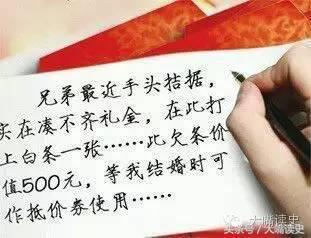 兄弟最近手头拮据，
实在凑不齐礼金，在此打
上白条一张……此欠条价
值500元，等我结婚时可
作抵价券使用……
大嘴读史
头条号/大嘴读史